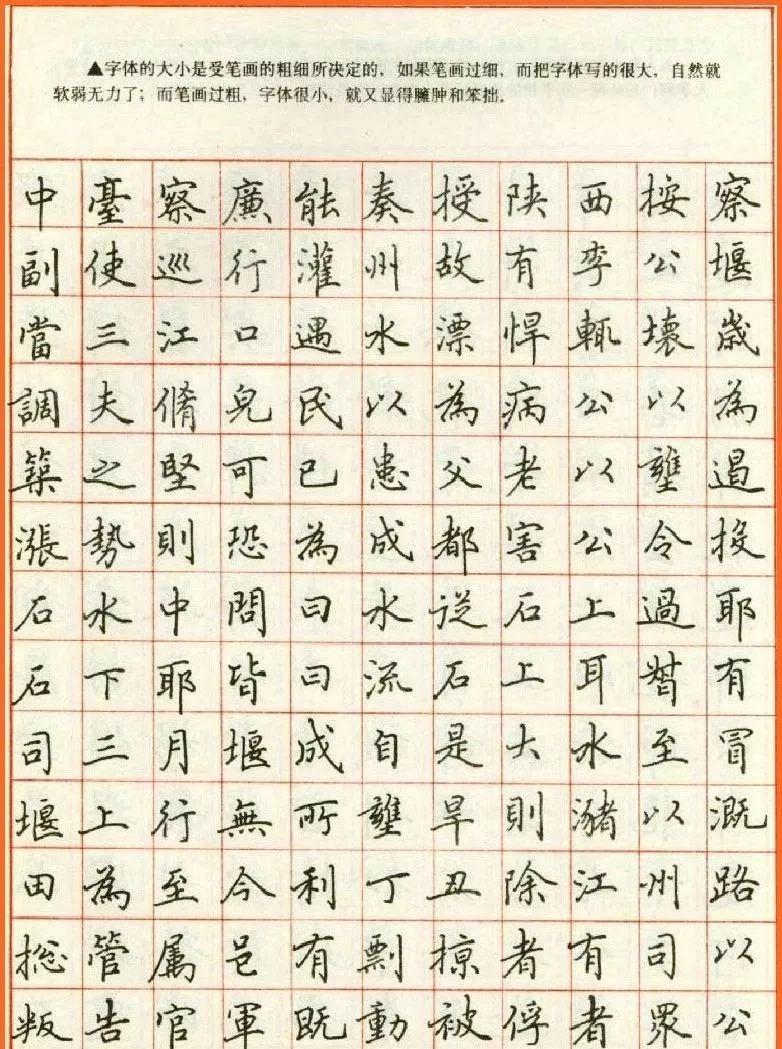 ▲字体的大小是受笔画的粗细所决定的，如果笔画过细，而把字体写的很大，自然就
软弱无力了；而笔画过粗，字体很小，就又显得臃肿和笨拙。
中臺察廉能奏授陕西按察
副使巡行灌州故有李公堰
當三江口遇水漂悍輒壞歲
調夫脩皃民以為病公以為
築之堅可已患父老以壅遏
漲勢則恐為成都害公令投
石水中問曰水従石上過耶
石下耶皆曰流石上耳督有
司三月堰成自是大水至冒
堰上行無所壅旱則瀦以溉
田為至今利丁丑除江州路
総管属邑有剽掠者有司以
叛告官軍既動被俘者眾公